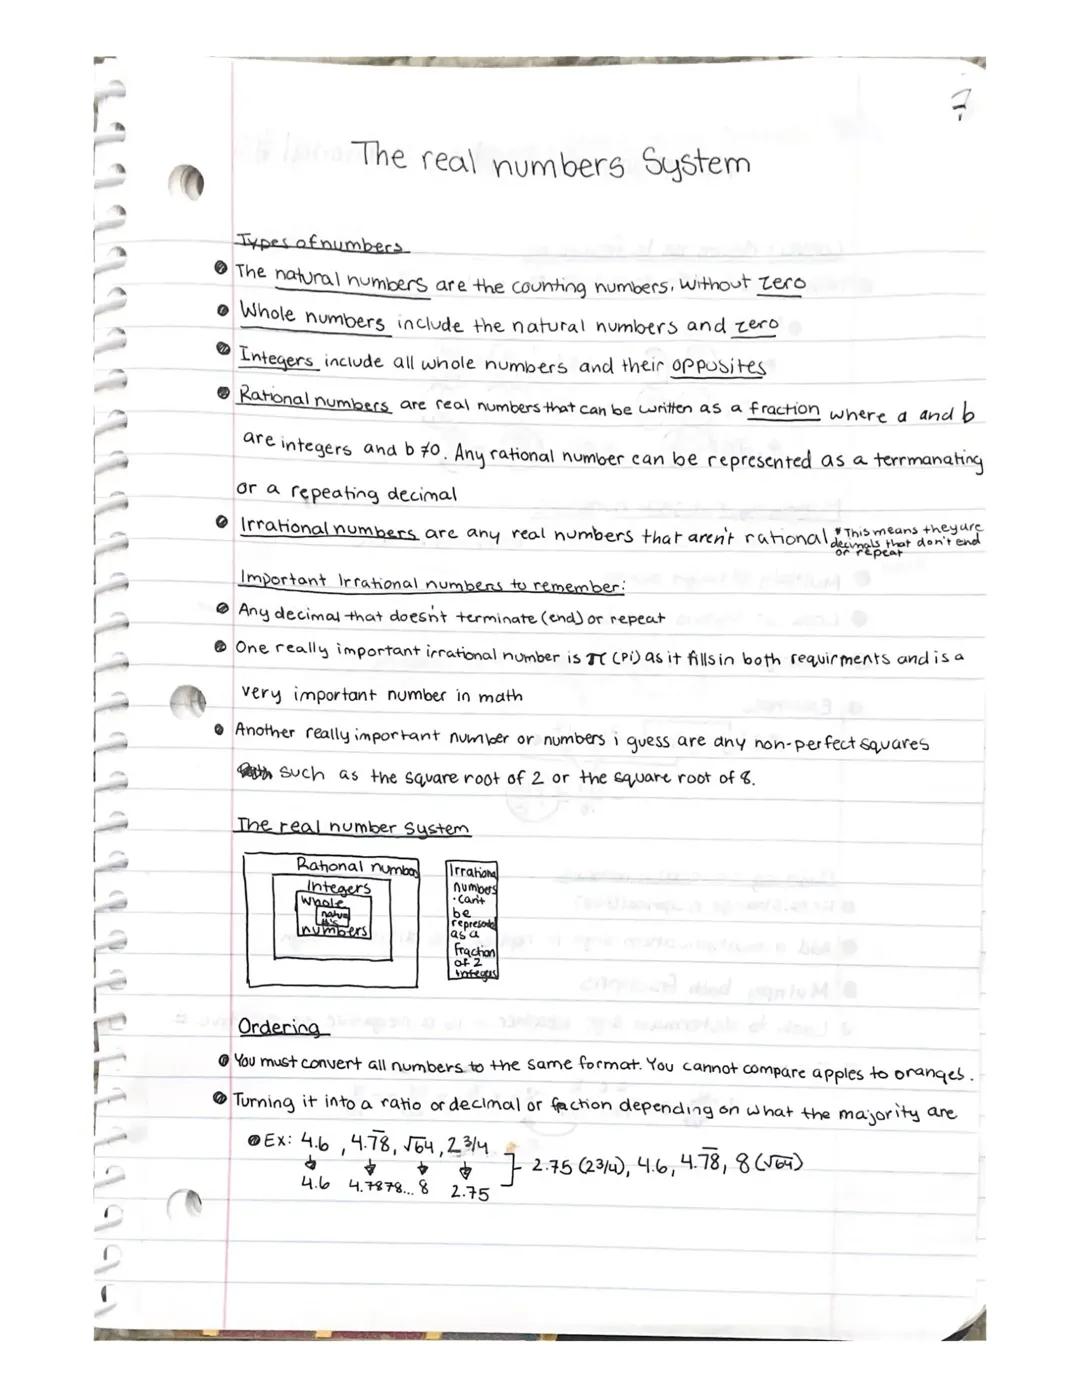 The real numbers System
Types of numbers
The natural numbers are the counting numbers, without zero
Whole numbers include the natural numbers and zero
Integers include all whole numbers and their opposites
Rational numbers are real numbers that can be written as a fraction where a and b
are integers and b ≠0. Any rational number can be represented as a terrmanating
or a repeating decimal
Irrational numbers are any real numbers that aren't rational *This means they are
decimals that don't end
or repeat
Important Irrational numbers to remember:
Any decimal that doesn't terminate (end) or repeat
One really important irrational number is π (Pi) as it fills in both requirments and is a
very important number in math
Another really important number or numbers i guess are any non-perfect squares
such as the square root of 2 or the square root of 8.
The real number system
Rational number
Integers
Whole
natural
#'s
numbers
Irrational
numbers
· can't
be
represented
as a
fraction
of 2
integers
Ordering
You must convert all numbers to the same format. You cannot compare apples to oranges.
Turning it into a ratio or decimal or faction depending on what the majority are
Ex: 4.6 , 4.7̅8̅, √64, 2 3/4
4.6 4.7878... 8 2.75
} 2.75 (2 3/4), 4.6, 4.7̅8̅, 8 (√64)